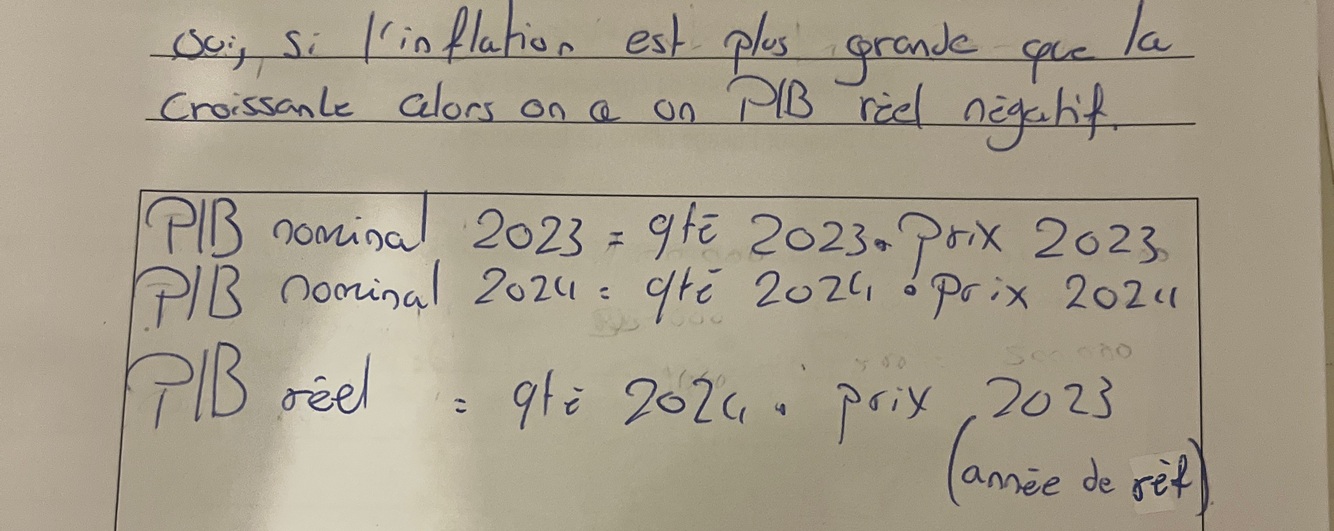 Oui, si l'inflation est plus grande que la
croissante alors on a on PIB réel négatif.
PIB nominal 2023 = qté 2023 • Prix 2023
PIB nominal 2024 = qté 2024 • Prix 2024
PIB réel = qté 2024 • prix 2023
(année de réf)